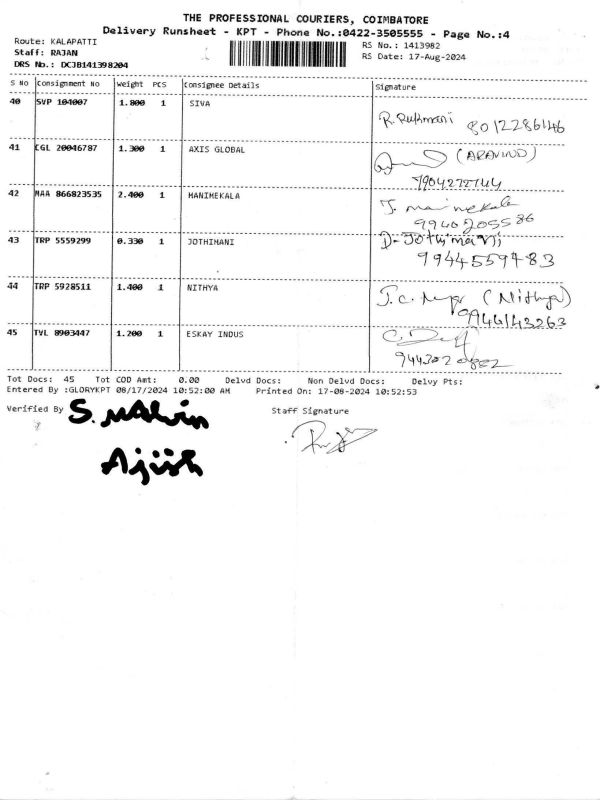 THE PROFESSIONAL COURIERS, COIMBATORE
Delivery Runsheet - KPT - Phone No.:0422-3505555 - Page No.:4
Route: KALAPATTI RS No.: 1413982
Staff: RAJAN RS Date: 17-Aug-2024
DRS No.: DCJB141398204
S No Consignment No Weight PCS Consignee Details Signature
40 SVP 104007 1.800 1 SIVA
R. Rukmani 8012286146
41 CGL 20046787 1.300 1 AXIS GLOBAL
(ARAVIND)
7904277744
42 MAA 866823535 2.400 1 MANIMEKALA
J. manimekala
9940205586
43 TRP 5559299 0.330 1 JOTHIMANI
D. Jothimani
9944559783
44 TRP 5928511 1.400 1 NITHYA
J. C. (Nithya)
9946143263
45 TVL 8903447 1.200 1 ESKAY INDUS
9443020882
Tot Docs: 45 Tot COD Amt: 0.00 Delvd Docs: Non Delvd Docs: Delvy Pts:
Entered By :GLORYKPT 08/17/2024 10:52:00 AM Printed On: 17-08-2024 10:52:53
Verified By S. Malvin Staff Signature
Ajish